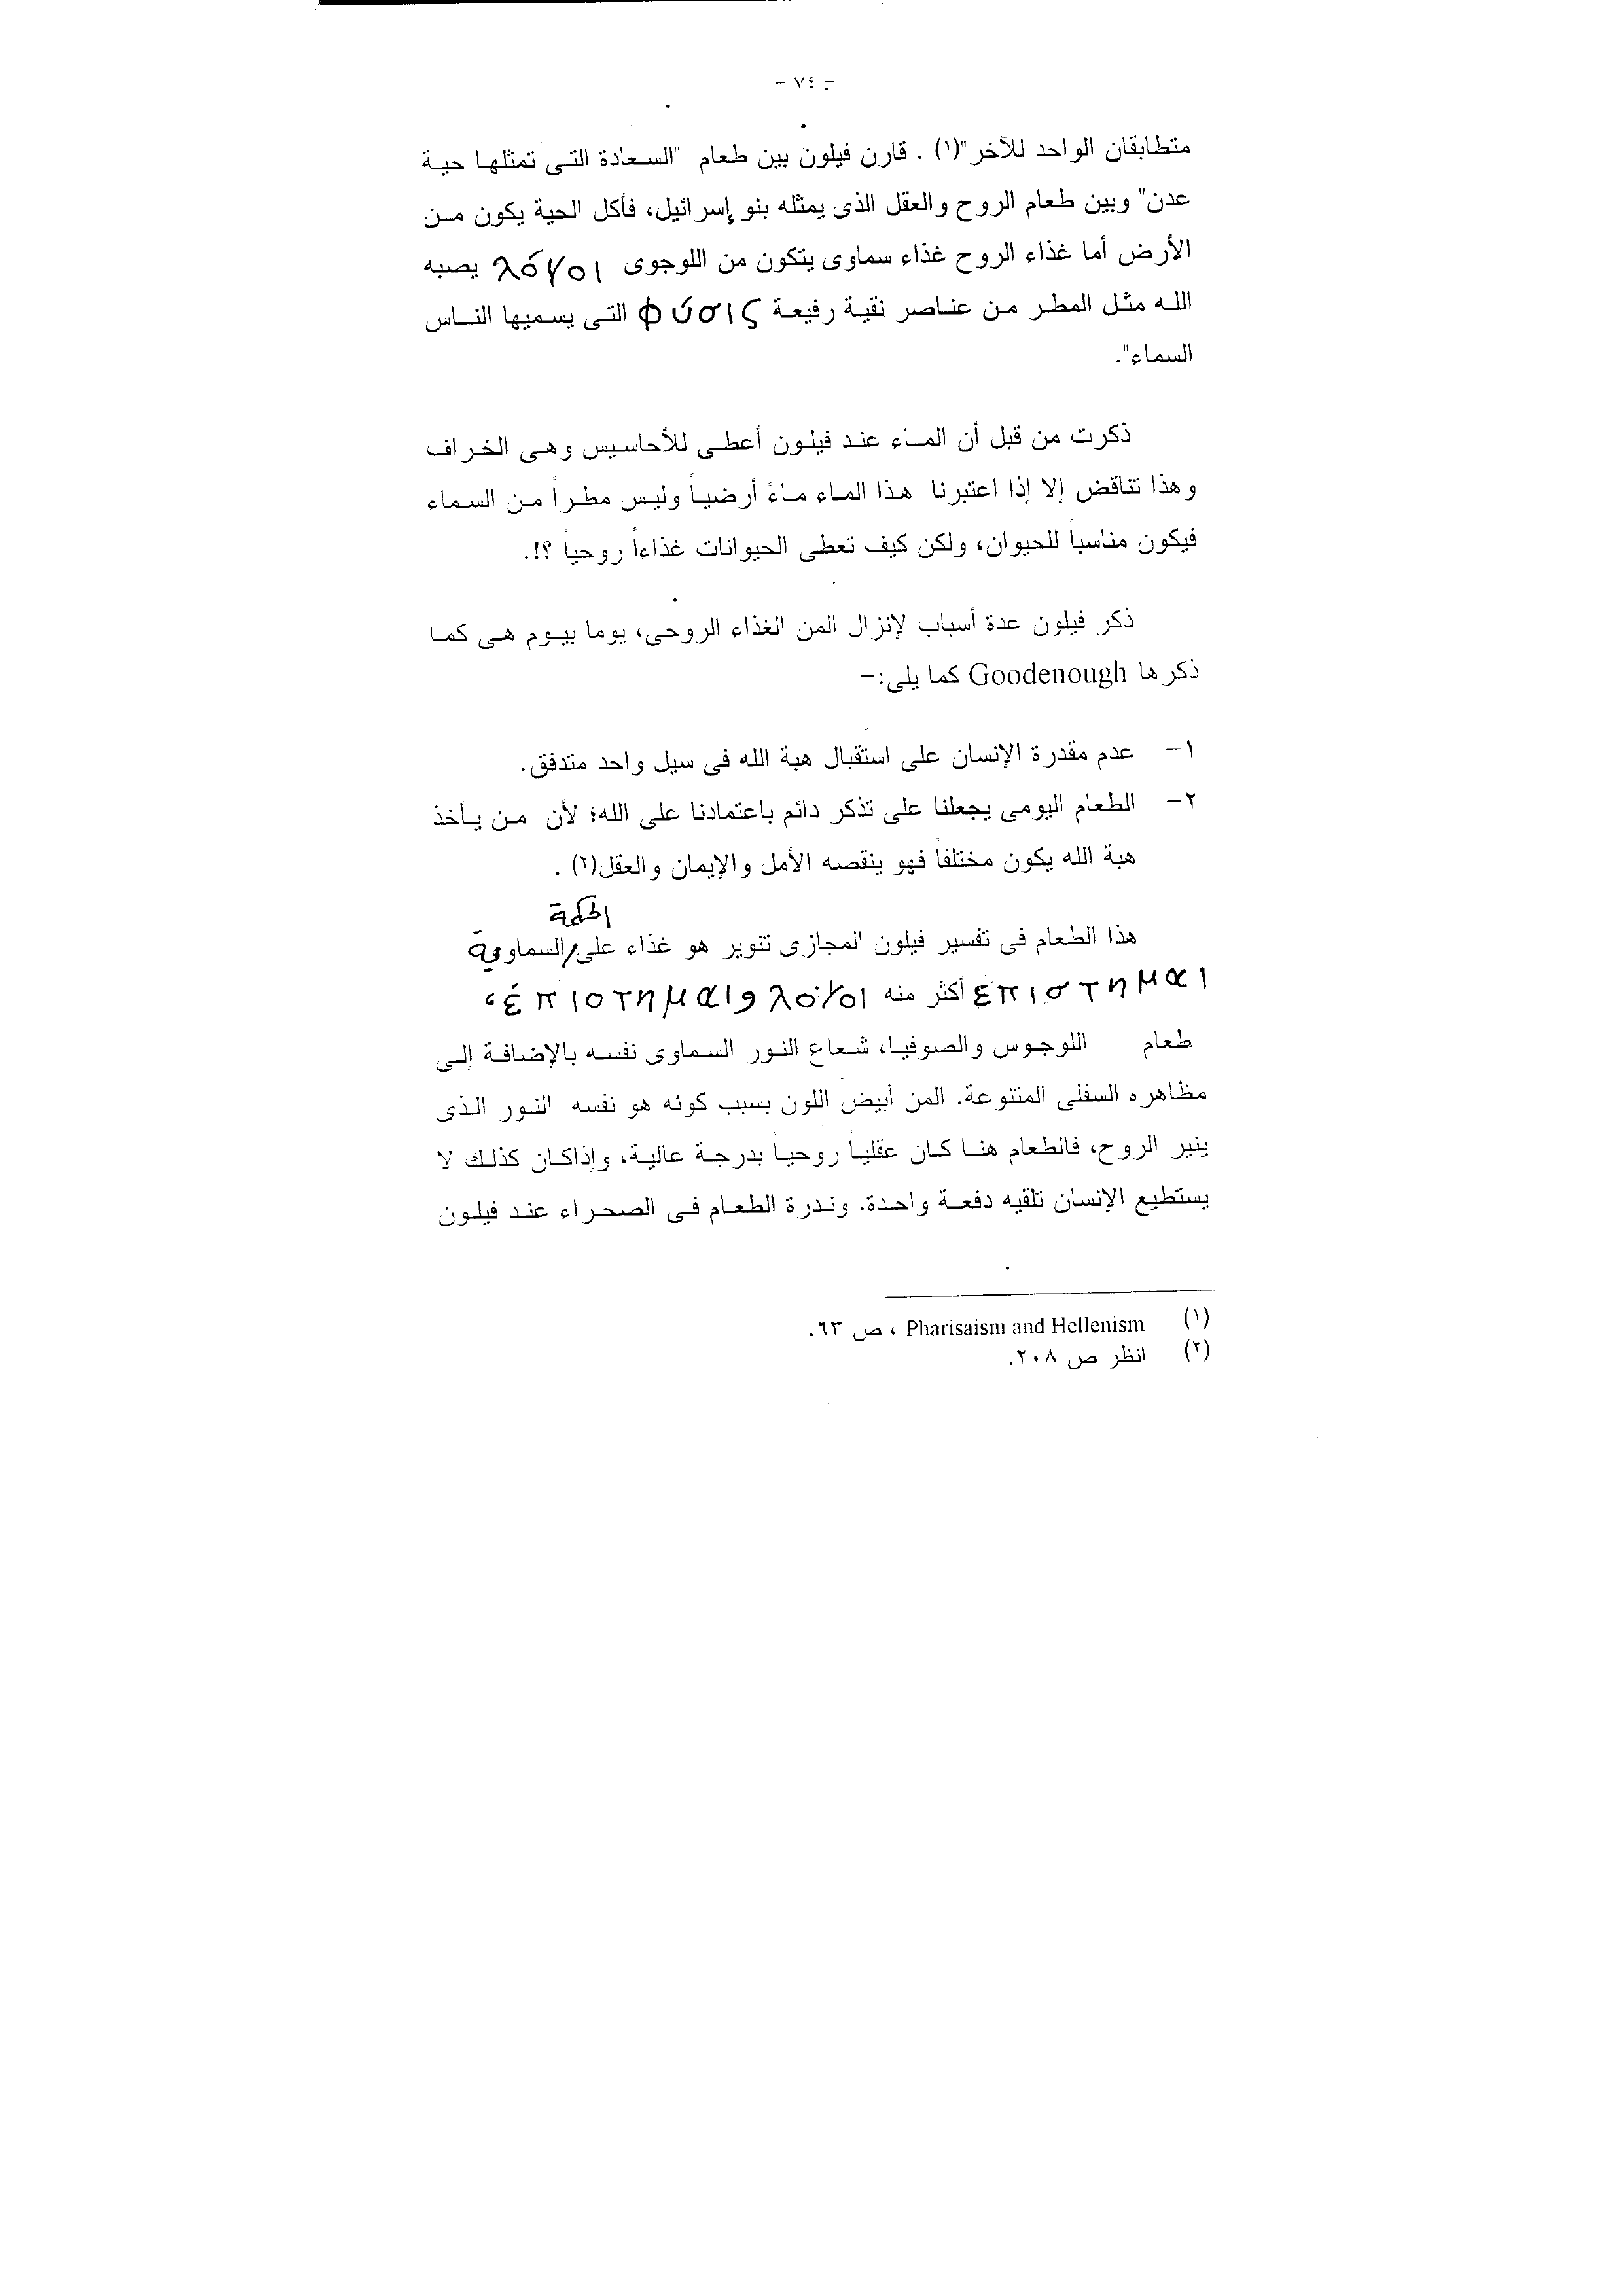 - ٧٤ -
متطابقان الواحد للآخر"(١) . قارن فيلون بين طعام "السعادة التى تمثلها حية
عدن" وبين طعام الروح والعقل الذى يمثله بنو إسرائيل، فأكل الحية يكون من
الأرض أما غذاء الروح غذاء سماوى يتكون من اللوجوى λόγοι يصبه
الله مثل المطر من عناصر نقية رفيعة φύσις التى يسميها الناس
السماء".
ذكرت من قبل أن الماء عند فيلون أعطى للأحاسيس وهى الخراف
وهذا تناقض إلا إذا اعتبرنا هذا الماء ماءً أرضياً وليس مطراً من السماء
فيكون مناسباً للحيوان، ولكن كيف تعطى الحيوانات غذاءاً روحياً ؟!.
ذكر فيلون عدة أسباب لإنزال المن الغذاء الروحى، يوما بيوم هى كما
ذكرها Goodenough كما يلى:-
١- عدم مقدرة الإنسان على استقبال هبة الله فى سيل واحد متدفق.
٢- الطعام اليومى يجعلنا على تذكر دائم باعتمادنا على الله؛ لأن من يأخذ
هبة الله يكون مختلفاً فهو ينقصه الأمل والإيمان والعقل(٢) .
الحكمة
هذا الطعام فى تفسير فيلون المجازى تنوير هو غذاء على/السماوية
επιστημαι أكثر منه λογοι و έπιστημαι،
طعام اللوجوس والصوفيا، شعاع النور السماوى نفسه بالإضافة إلى
مظاهره السفلى المتنوعة. المن أبيض اللون بسبب كونه هو نفسه النور الذى
ينير الروح، فالطعام هنا كان عقلياً روحياً بدرجة عالية، وإذاكان كذلك لا
يستطيع الإنسان تلقيه دفعة واحدة. وندرة الطعام فى الصحراء عند فيلون
(١) Pharisaism and Hellenism ، ص ٦٣.
(٢) انظر ص ٢٠٨.